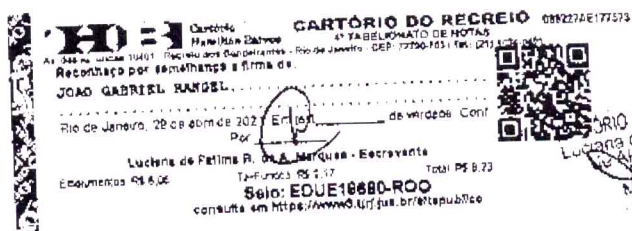 HB Cartório Hamilton Barros CARTÓRIO DO RECREIO 088227AE177573
4º TABELIONATO DE NOTAS
Recreio dos Bandeirantes - Rio de Janeiro - CEP:
Reconheço por semelhança a firma de:
JOAO GABRIEL RANGEL
Rio de Janeiro, 29 de abril de 202 Em test. de verdade. Conf
Por
Luciana de Fatima R. de A. Marques - Escrevente
Emolumentos: R$ 6,06 TJ+Fundos: R$ 2,17 Total: R$ 8,23
Selo: EDUE18680-ROO
consulte em https://www3.tjrj.jus.br/sitepublico
Luciana